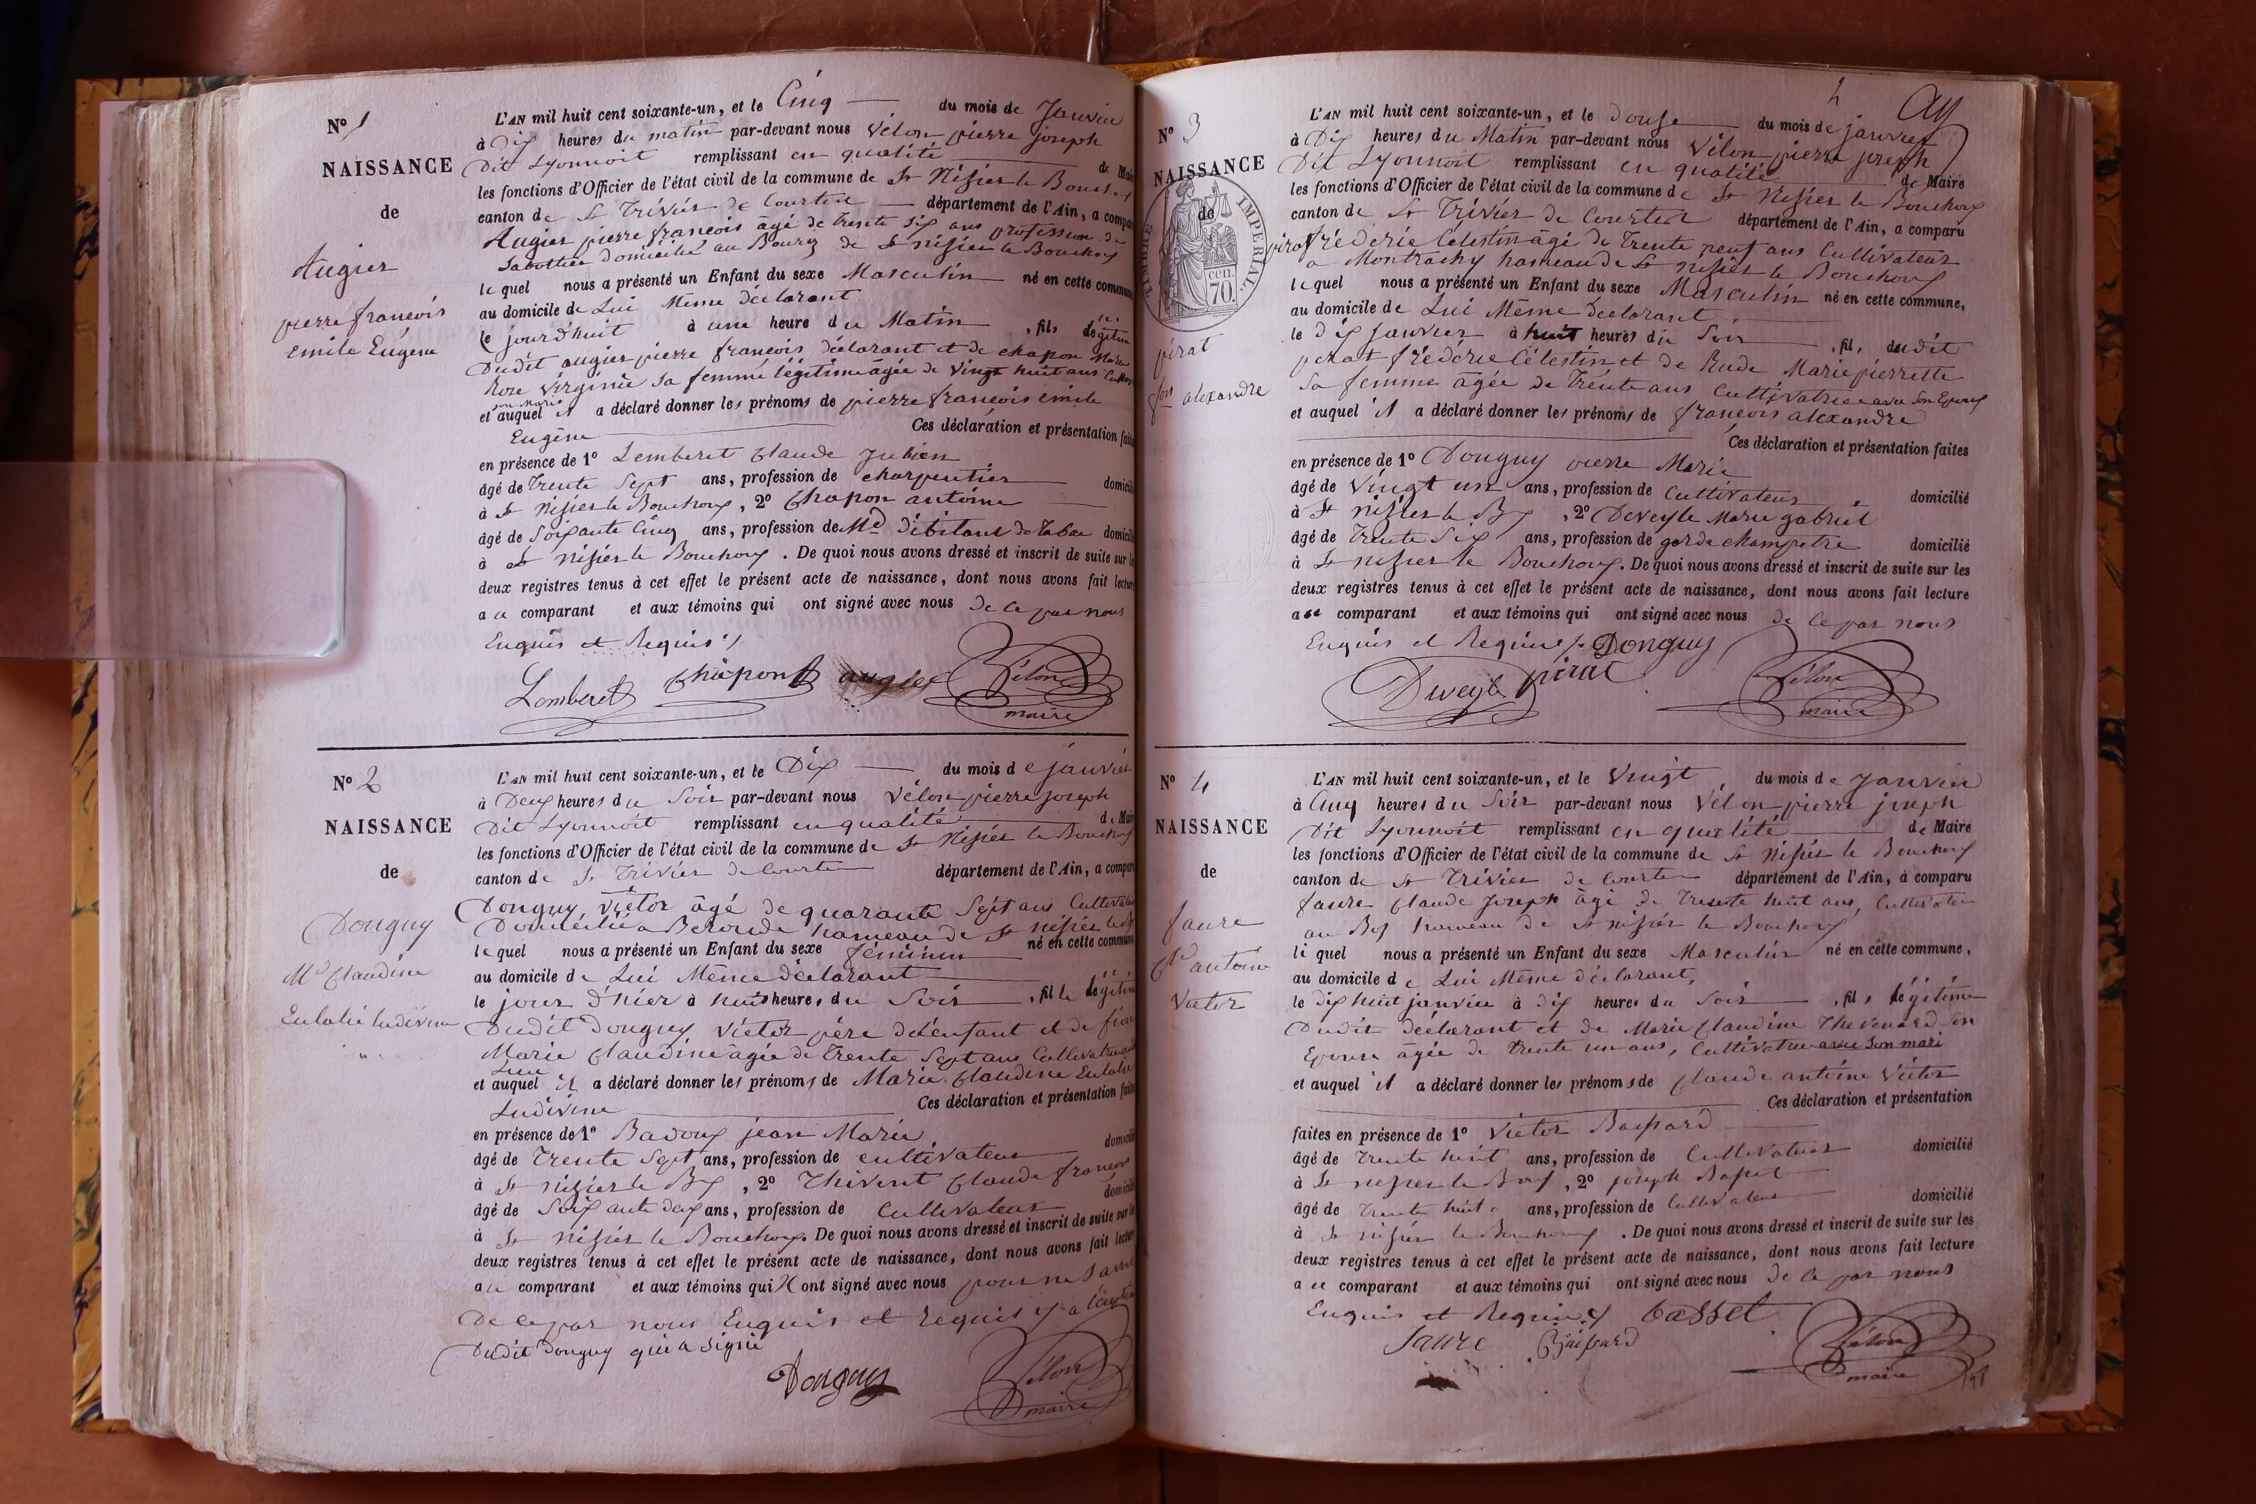 N° 1
NAISSANCE
de
Augier
pierre françois
emile Eugène
L'AN mil huit cent soixante-un, et le Cinq du mois de Janvier
à Dix heures du matin par-devant nous Vélon pierre joseph
Dit Lyonnoit remplissant en qualité de Mai
les fonctions d'Officier de l'état civil de la commune de St Nisier le Bouchoux
canton de St Trivier de Courtes département de l'Ain, a compa
Augier pierre françois âgé de trente six ans profession de
Sabottier domicilié au Bourg de St nisier le Bouchoux
lequel nous a présenté un Enfant du sexe Masculin né en cette commune
au domicile de Lui Même déclarant
le jourd'huit à une heure du Matin , fils légitime
Dudit augier pierre françois déclarant et de chapon Marie
Rose Virginie sa femme légitime âgée de Vingt huit ans
son Marie
et auquel il a déclaré donner les prénoms de pierre françois émile
Eugène Ces déclaration et présentation faite
en présence de 1° Lemberet Claude Julien
âgé de Trente Sept ans, profession de charpentier domicilié
à St Nisier le Bouchoux, 2° Chapon antoine
âgé de Soixante Cinq ans, profession de Md débitant de Tabac domicilié
à St Nisier le Bouchoux. De quoi nous avons dressé et inscrit de suite sur le
deux registres tenus à cet effet le présent acte de naissance, dont nous avons fait lecture
au comparant et aux témoins qui ont signé avec nous de ce par nous
Enquis et Requis
Lomberet Chapon augier Vélon
maire
N° 2
NAISSANCE
de
Donguy
Mie Claudine
Eulalie Ludivine
L'AN mil huit cent soixante-un, et le Dix du mois de janvier
à Deux heures du Soir par-devant nous Vélon pierre joseph
Dit Lyonnoit remplissant en qualité de Mair
les fonctions d'Officier de l'état civil de la commune de St Nisier le Bouchoux
canton de St Trivier de Courtes département de l'Ain, a compar
Donguy Victor âgé de quarante Sept ans Cultivateur
Domicilié a Beroude hameau de St nisier le Bx
lequel nous a présenté un Enfant du sexe féminin né en cette commune
au domicile de Lui Même déclarant
le jour d'hier à huit heures du Soir , fille légitime
Dudit Donguy Victor père de l'enfant et de
Marie Claudine âgée de Trente Sept ans Cultivatrice
et auquel il a déclaré donner les prénoms de Marie Claudine Eulalie
Ludivine Ces déclaration et présentation faite
en présence de 1° Badoux jean Marie
âgé de Trente Sept ans, profession de cultivateur domicilié
à St nisier le Bx, 2° Thivent Claude françois
âgé de Soixante deux ans, profession de Cultivateur domicilié
à St Nisier le Bouchoux. De quoi nous avons dressé et inscrit de suite sur le
deux registres tenus à cet effet le présent acte de naissance, dont nous avons fait lecture
au comparant et aux témoins qui n'ont signé avec nous pour ne savoir
De ce par nous Enquis et requis à l'exception
Dudit Donguy qui a signé
Donguy Vélon
maire
4
N° 3
NAISSANCE
de
TIMBRE IMPERIAL
70 CEN.
pirat
fois alexandre
L'AN mil huit cent soixante-un, et le Douze du mois de janvier
à Dix heures du Matin par-devant nous Vélon pierre joseph
Dit Lyonnoit remplissant en qualité de Maire
les fonctions d'Officier de l'état civil de la commune de St Nisier le Bouchoux
canton de St Trivier de Courtes département de l'Ain, a comparu
pirat fréderic Celestin âgé de Trente neuf ans Cultivateur
a Montrachy hameau de St nisier le Bouchoux
lequel nous a présenté un Enfant du sexe Masculin né en cette commune,
au domicile de Lui Même Déclarant
le dix Janvier à huit heures du Soir , fils dudit
pirat fréderic Célestin et de Rude Marie pierrette
sa femme âgée de Trente ans Cultivatrice avec son Epoux
et auquel il a déclaré donner les prénoms de françois alexandre
Ces déclaration et présentation faites
en présence de 1° Donguy pierre Marie
âgé de Vingt un ans, profession de Cultivateur domicilié
à St nisier le Bx, 2° Deveyle Marie gabriel
âgé de Trente Six ans, profession de garde champetre domicilié
à St nisier le Bouchoux. De quoi nous avons dressé et inscrit de suite sur les
deux registres tenus à cet effet le présent acte de naissance, dont nous avons fait lecture
au comparant et aux témoins qui ont signé avec nous de ce par nous
Enquis et Requis Donguy
Deveyle pirat Vélon
maire
N° 4
NAISSANCE
de
faure
Cde antoine
Victor
L'AN mil huit cent soixante-un, et le Vingt du mois de Janvier
à Cinq heures du Soir par-devant nous Vélon pierre joseph
Dit Lyonnoit remplissant en qualité de Maire
les fonctions d'Officier de l'état civil de la commune de St Nisier le Bouchoux
canton de St Trivier de Courtes département de l'Ain, a comparu
faure Claude Joseph âgé de Trente huit ans, Cultivateur
au hameau de St nisier le Bouchoux
lequel nous a présenté un Enfant du sexe Masculin né en cette commune,
au domicile de Lui Même déclarant,
le dix huit janvier à dix heures du Soir , fils légitime
Dudit déclarant et de Marie Claudine Thevenard son
Epouse âgée de trente un ans, Cultivatrice avec son mari
et auquel il a déclaré donner les prénoms de Claude antoine Victor
Ces déclaration et présentation
faites en présence de 1° Victor Baissard
âgé de Trente huit ans, profession de Cultivateur domicilié
à St nisier le Boux, 2° joseph Basset
âgé de Trente huit ans, profession de Cultivateur domicilié
à St nisier le Bouchoux. De quoi nous avons dressé et inscrit de suite sur les
deux registres tenus à cet effet le présent acte de naissance, dont nous avons fait lecture
au comparant et aux témoins qui ont signé avec nous de ce par nous
Enquis et Requis Basset
faure Baissard Vélon
maire